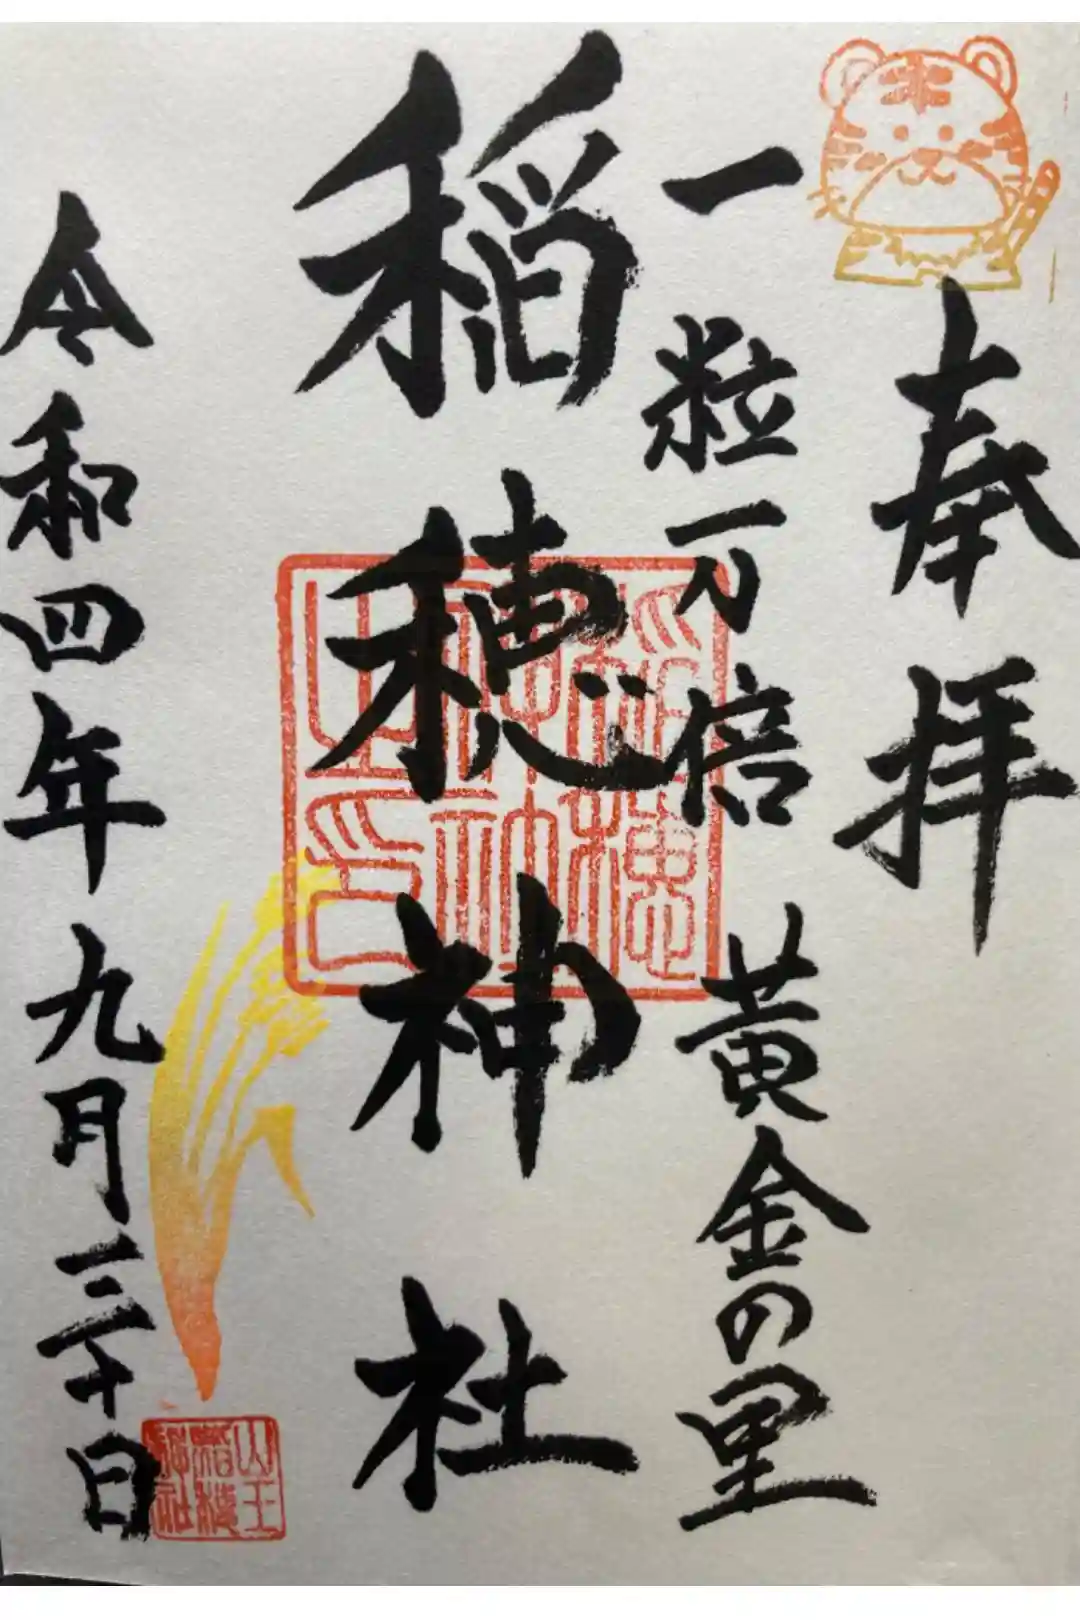 奉拝
一粒万倍 黄金の里
稲穂神社
令和四年九月三十日
山王
稲穂
神社